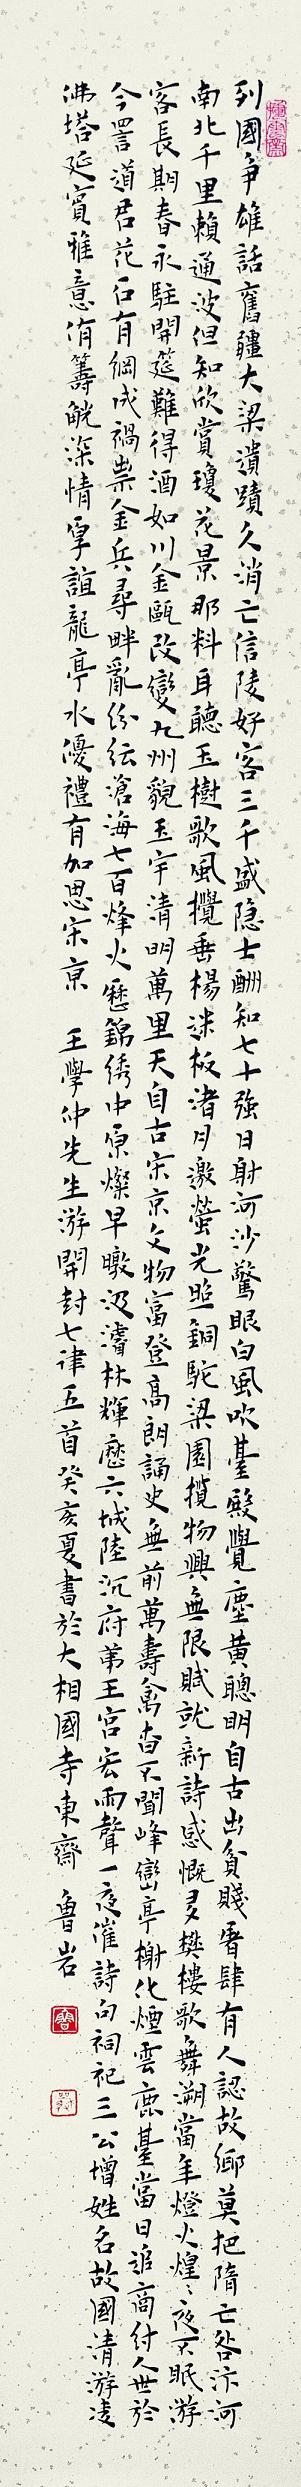 列國爭雄話舊疆大梁遺蹟久消亡信陵好客三千盛隐士酬知七十強日射河沙驚眼白風吹臺殿覺塵黃聰明自古出貧賤屠肆有人認故鄉莫把隋亡咎汴河
南北千里賴通波但知欣賞瓊花景那料耳聽玉樹歌風攪垂楊迷板渚月邀螢光照銅駝梁園攬物興無限賦就新詩感慨多樊樓歌舞溯當年燈火煌〻夜不眠游
客長期春永駐開筵難得酒如川金甌改變九州貌玉宇清明萬里天自古宋京文物富登高朗誦史無前萬壽禽音不聞峰巒亭榭化煙雲鹿臺當日追商紂人世於
今詈道君花石有綱成禍祟金兵尋衅亂紛纭滄海七百烽火歷錦綉中原燦早暾汲濬林輝歷六城陸沉府第王宮宏雨聲一夜催詩句祠祀三公增姓名故國清游凌
佛塔延賓雅意侑籌觥深情厚誼龍亭水優禮有加思宋京 王學仲先生游開封七律五首癸亥夏書於大相國寺東齋 魯岩